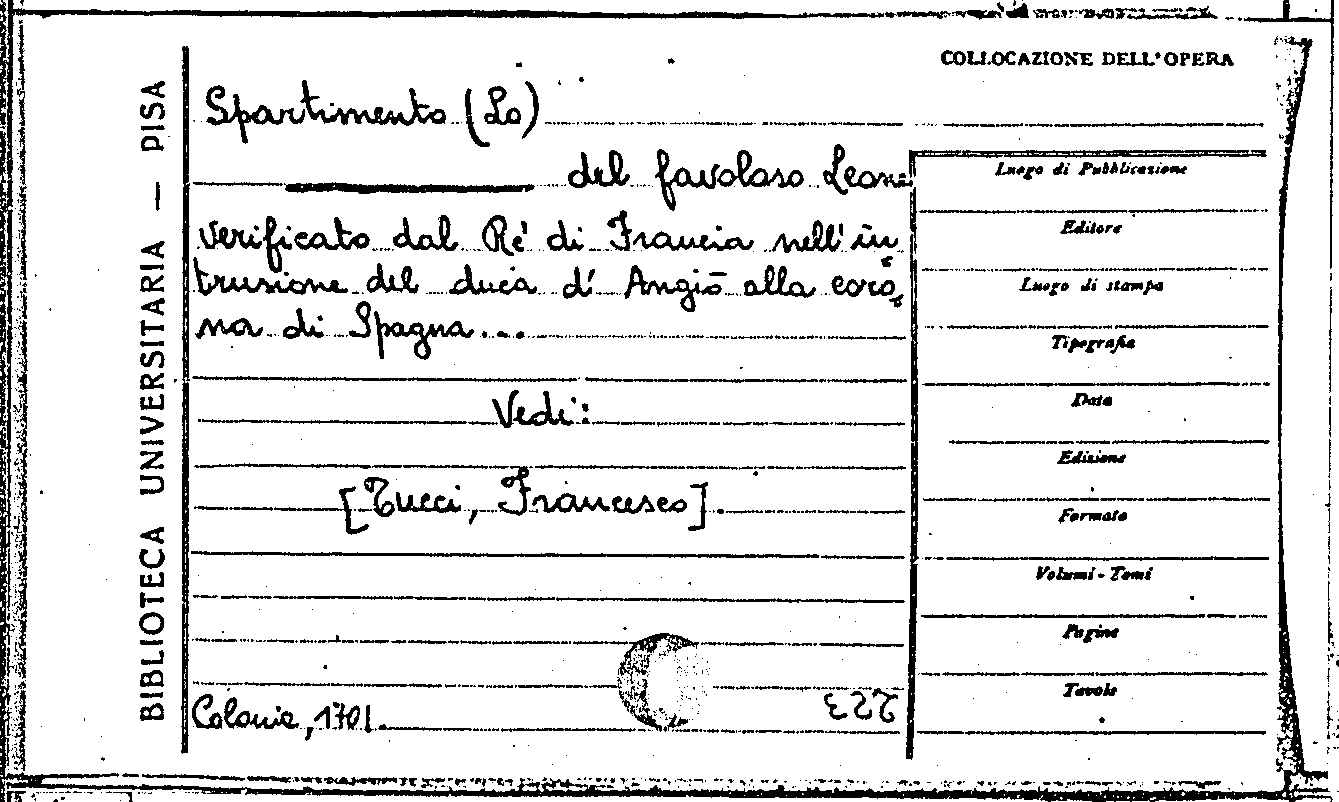 COLLOCAZIONE DELL'OPERA
BIBLIOTECA UNIVERSITARIA — PISA
Spartimento (Lo)
del favoloso Leone
verificato dal Re' di Francia nell'in
trusione del duca d'Angiò alla coro
na di Spagna...
Vedi:
[Tucci, Francesco].
Colonia, 1701.
Luogo di Pubblicazione
Editore
Luogo di stampa
Tipografia
Data
Edizione
Formato
Volumi - Tomi
Pagine
Tavole